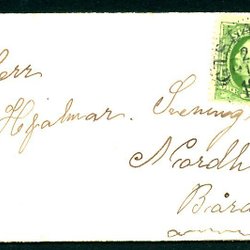 Herr
Hjalmar Svening
Nordh
Båra